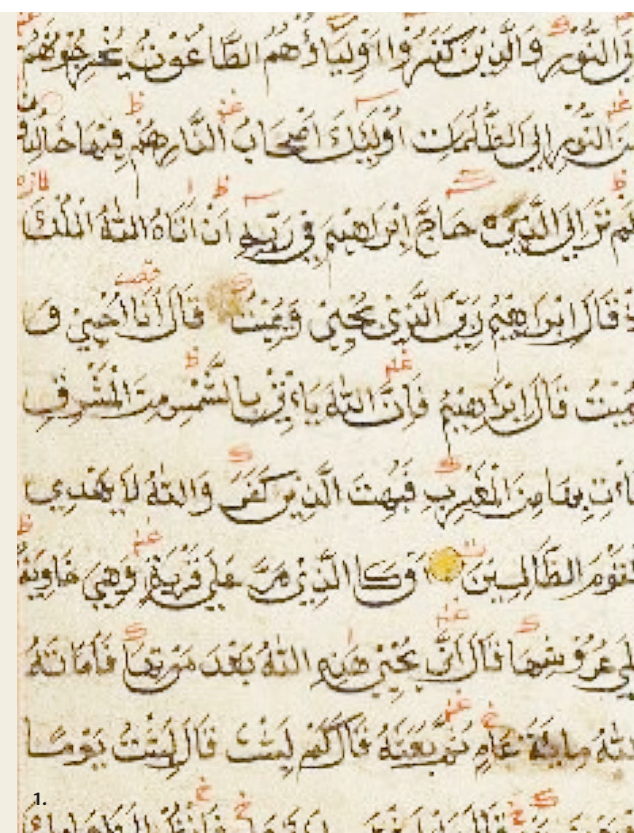 لى النُّورِ وَالَّذِينَ كَفَرُوا اَوْلِيَاؤُهُمُ الطَّاغُوتُ يُخْرِجُونَهُمْ
مِنَ النُّورِ اِلَى الظُّلُمَاتِ اُولَئِكَ اَصْحَابُ النَّارِ هُمْ فِيهَا
لَمْ تَرَ اِلَى الَّذِي حَاجَّ اِبْرَاهِيمَ فِي رَبِّهِ اَنْ اَتَاهُ اللهُ الْمُلْكَ
قَالَ اِبْرَاهِيمُ رَبِّيَ الَّذِي يُحْيِي وَيُمِيتُ قَالَ اَنَا اُحْيِي وَ
اُمِيتُ قَالَ اِبْرَاهِيمُ فَاِنَّ اللهَ يَاْتِي بِالشَّمْسِ مِنَ الْمَشْرِقِ
فَاْتِ بِهَا مِنَ الْمَغْرِبِ فَبُهِتَ الَّذِي كَفَرَ وَاللهُ لَا يَهْدِي
الْقَوْمَ الظَّالِمِينَ اَوْ كَالَّذِي مَرَّ عَلَى قَرْيَةٍ وَهِيَ خَاوِيَةٌ
عَلَى عُرُوشِهَا قَالَ اَنَّى يُحْيِي هَذِهِ اللهُ بَعْدَ مَوْتِهَا فَاَمَاتَهُ
اللهُ مِايَةَ عَامٍ ثُمَّ بَعَثَهُ قَالَ كَمْ لَبِثْتَ قَالَ لَبِثْتُ يَوْمًا
1.